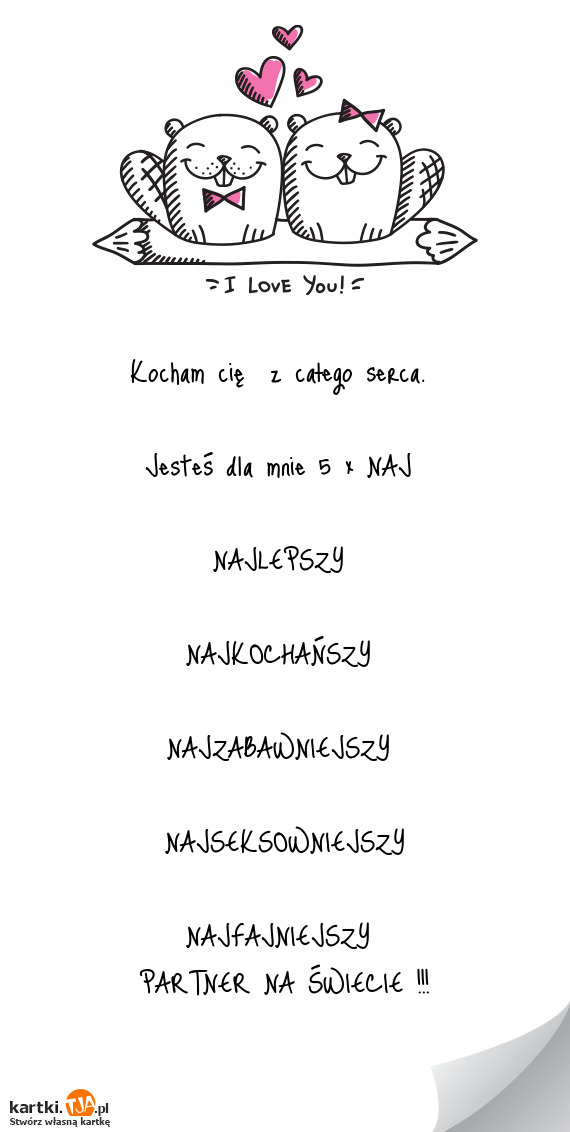 I LOVE YOU!
Kocham cię z całego serca.
Jesteś dla mnie 5 x NAJ
NAJLEPSZY
NAJKOCHAŃSZY
NAJZABAWNIEJSZY
NAJSEKSOWNIEJSZY
NAJFAJNIEJSZY
PARTNER NA ŚWIECIE !!!
kartki.TJA.pl
Stwórz własną kartkę